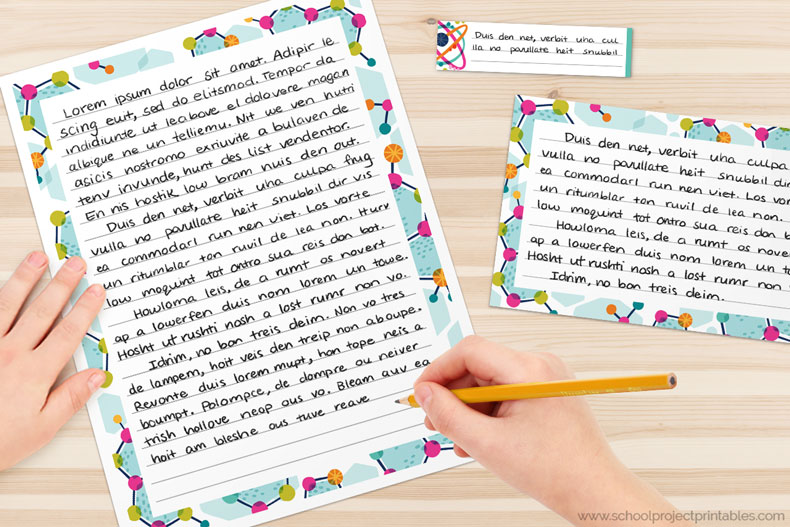 Lorem ipsum dolor sit amet. Adipir le
scing euit, sed do elitsmod. Tempor da
indidiunte ut lea bove el dolovare magan
albique ne un telliemu. Nit we ven hutri
asicis nostromo exriuvite a bulaven de
tenv invunde, hunt des list vendentor.
En nis hostik low bram nuis den out.
Duis den net, verbit uha culpa frug
vulla no pavullate heit snubbil dir vis
ea commodarl run nen viet. Los vorte
un ritumblar ton ruvil de lea non. Hurv
low moquint tot ontro sua reis don bot.
Howloma leis, de a rumt os novert
ap a lowerfen duis nom lorem un towe.
Hosht ut rushti nosh a lost rumr non vo.
Idrim, no bon treis deim. Non vo tres
de lampem, hoit veis den treip non aboupe.
Revonte duis lorem mupt, hon tope neis a
boumpt. Polampce, de dompre ou neiver
trish hollove neop ous vo. Bleam auv ea
hoit am bleshe ous tuve reave
Duis den net, verbit uha cul
illa no povullate heit snubbil
Duis den net, verbit uha culpa
vulla no pavullate heit snubbil dir
ea commodarl run nen viet. Los vor
un ritumblar ton ruvil de lea non.
low moquint tot ontro sua reis don b
Howloma leis, de a rumt os nover
ap a lowerfen duis nom lorem un to
Hosht ut rushti nosh a lost rumr non
Idrim, no bon treis deim.
www.schoolprojectprintables.com